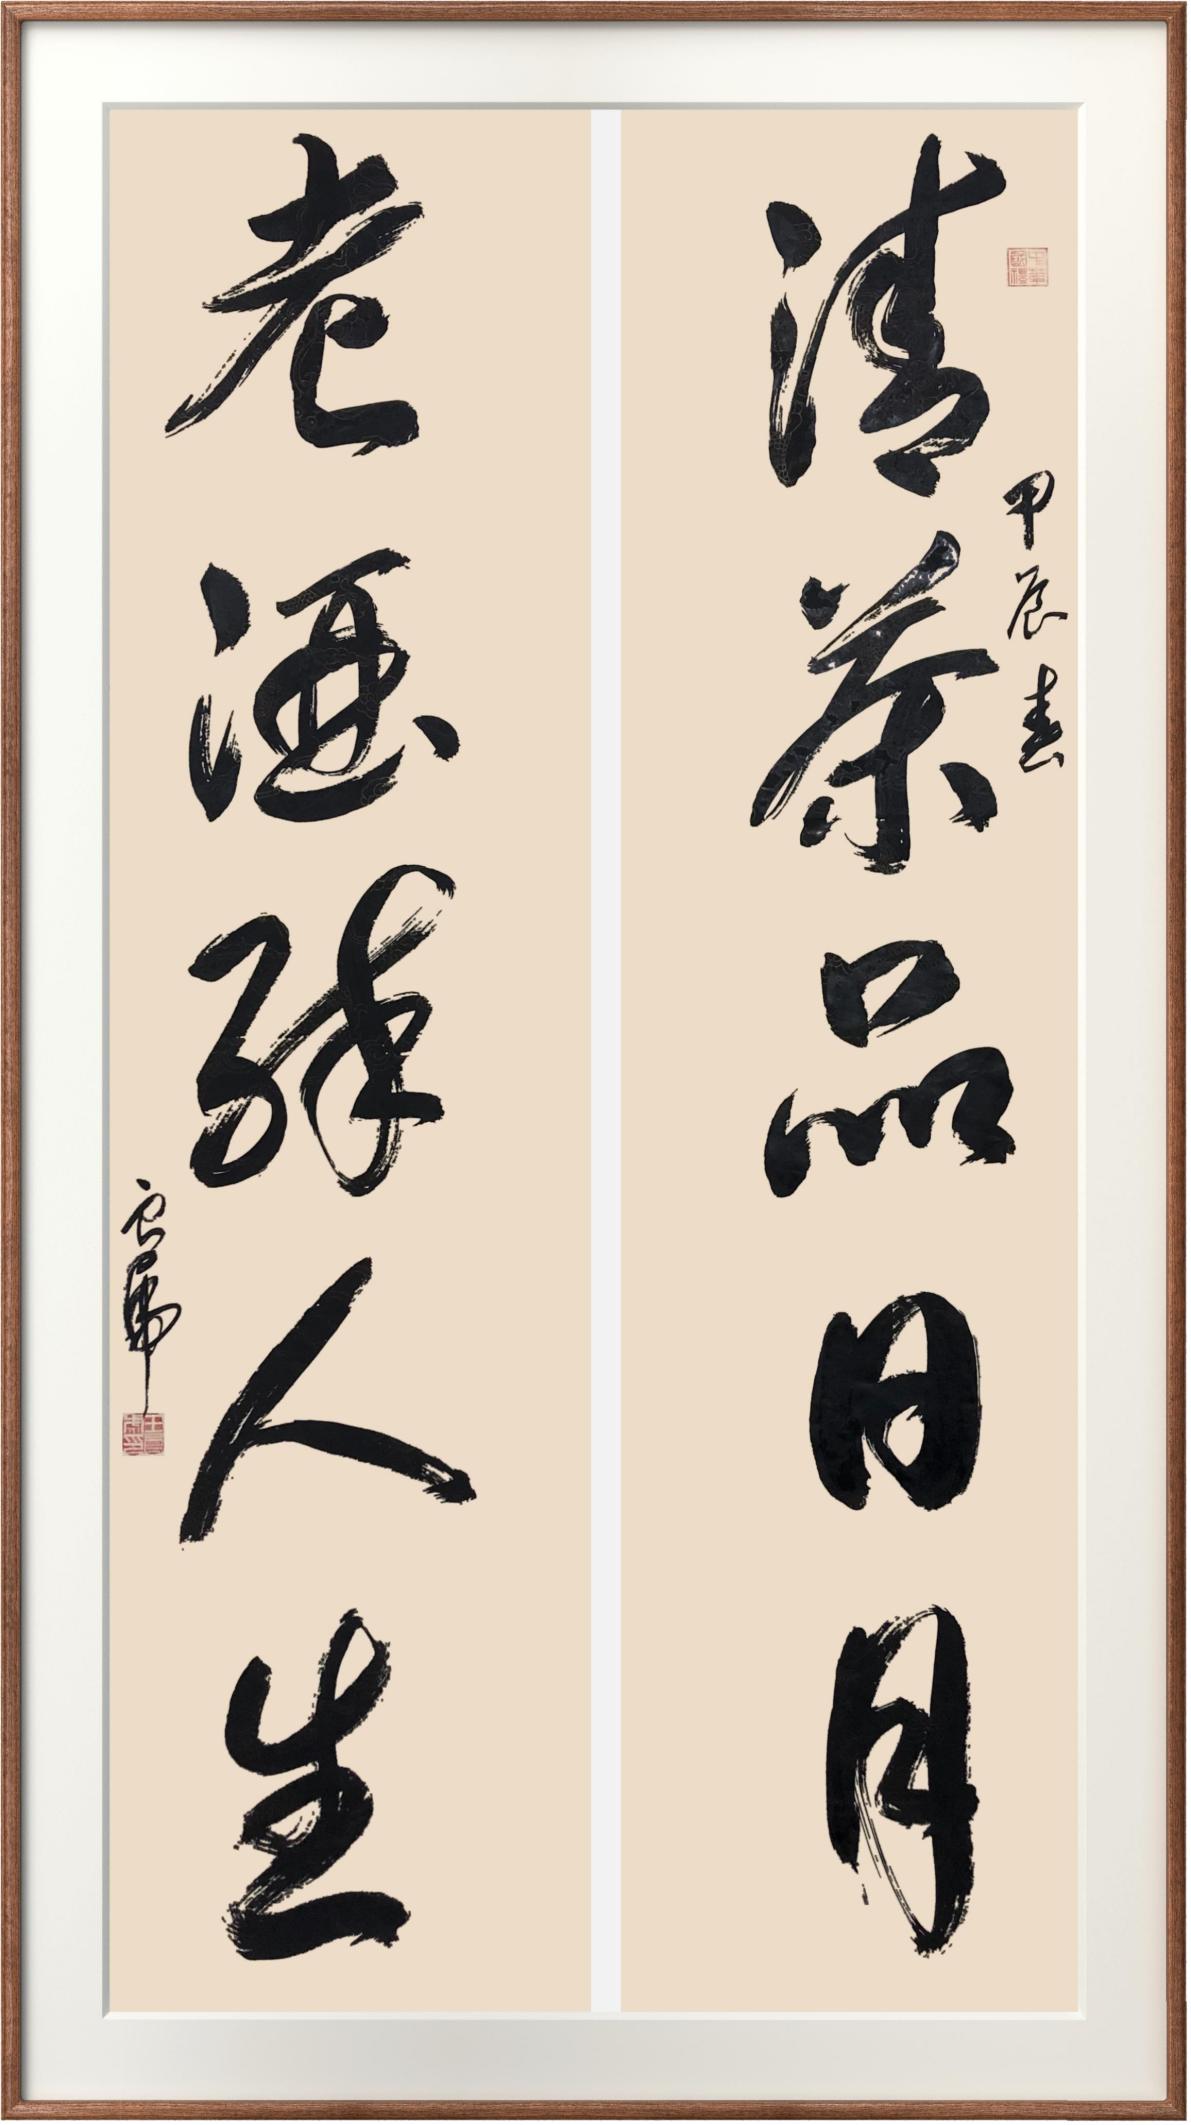 清茶品日月
甲辰春
老酒人生
良虎